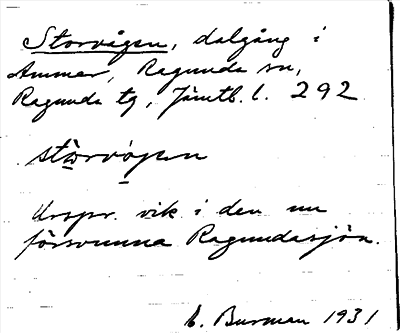 Storvågen, dalgång i
Ammer, Ragunda sn,
Ragunda tg, Jämtl. l. 292
stɷrvógen
Urspr. vik i den nu
försvunna Ragundasjön.
E. Burman 1931